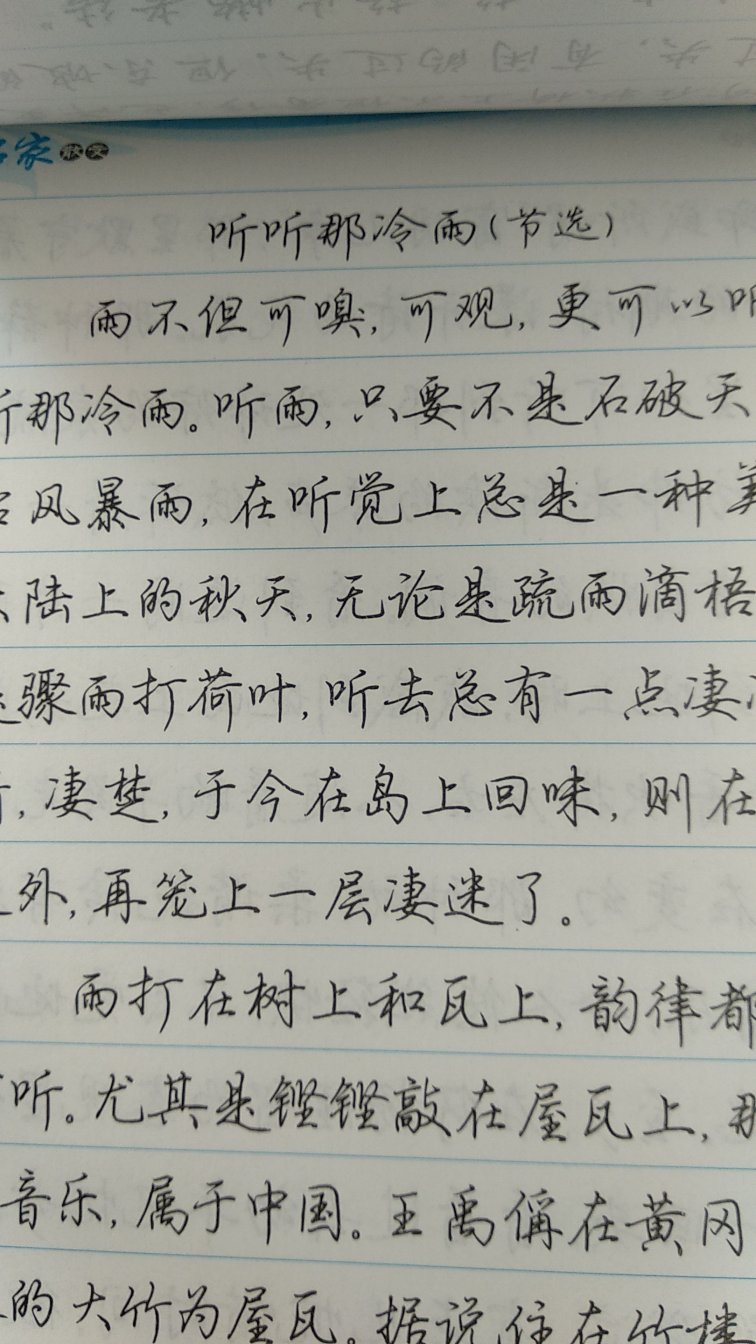 家 散文
听听那冷雨(节选)
雨不但可嗅,可观,更可以听
听那冷雨。听雨,只要不是石破天
台风暴雨,在听觉上总是一种美
大陆上的秋天,无论是疏雨滴梧
骤雨打荷叶,听去总有一点凄
,凄楚,于今在岛上回味,则在
外,再笼上一层凄迷了。
雨打在树上和瓦上,韵律都
听。尤其是铿铿敲在屋瓦上,那
音乐,属于中国。王禹偁在黄冈
的大竹为屋瓦。据说住在竹楼